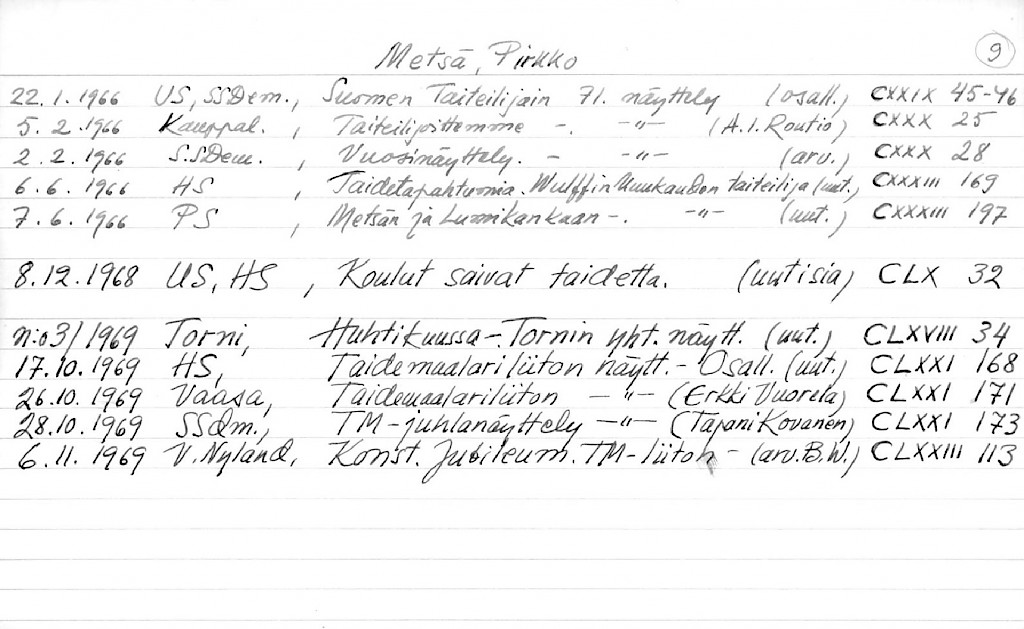 Metsä, Pirkko 9
22.1.1966 US, SSDem., Suomen Taiteilijain 71. näyttely (osall.) CXXIX 45-46
5.2.1966 Kauppal., Taiteilijoittemme -. -"- (A.I. Routio) CXXX 25
2.2.1966 S.SDem., Vuosinäyttely. - -"- (arv.) CXXX 28
6.6.1966 HS, Taidetapahtumia. Wulffin Kuukauden taiteilija (uut.) CXXXIII 169
7.6.1966 PS, Metsän ja Lumikankaan -. -"- (uut.) CXXXIII 197
8.12.1968 US, HS, Koulut saivat taidetta. (uutisia) CLX 32
n:o 3/1969 Torni, Huhtikuussa -. Tornin yht. näytt. (uut.) CLXVIII 34
17.10.1969 HS, Taidemaalariliiton näytt. - Osall. (uut.) CLXXI 168
26.10.1969 Vaasa, Taidemaalariliiton - -"- (Erkki Vuorela) CLXXI 171
28.10.1969 SSdm., TM-juhlanäyttely -"- (Tapani Kovanen) CLXXI 173
6.11.1969 V. Nyland, Konst. Jubileum. TM-liiton - (arv. B.W.) CLXXIII 113